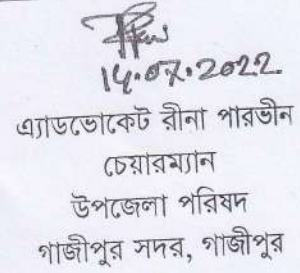 14.07.2022
এ্যাডভোকেট রীনা পারভীন
চেয়ারম্যান
উপজেলা পরিষদ
গাজীপুর সদর, গাজীপুর